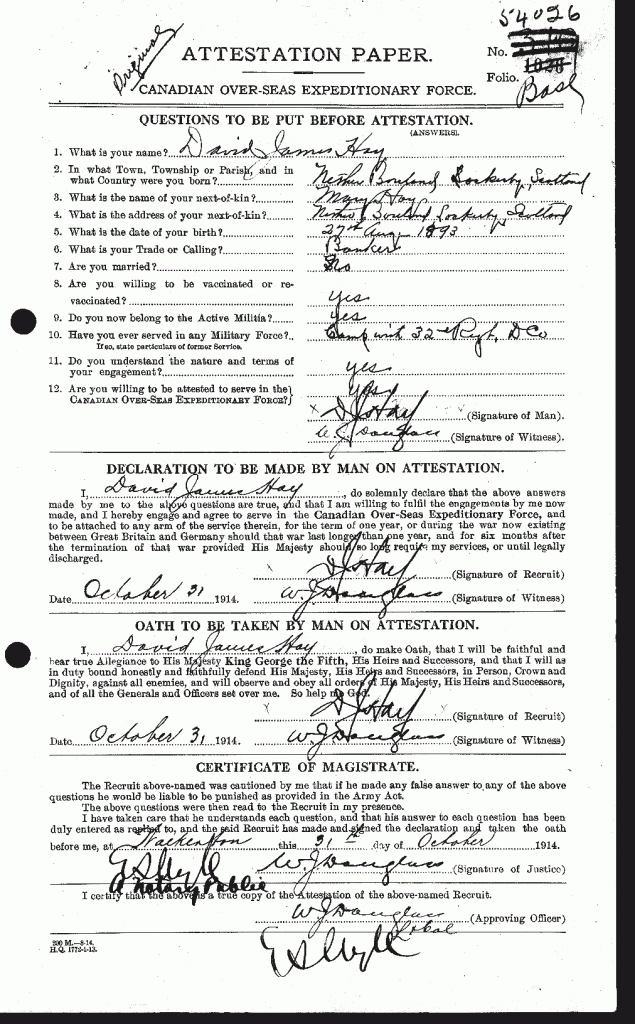 54026
Original
ATTESTATION PAPER.
No.
Folio.
CANADIAN OVER-SEAS EXPEDITIONARY FORCE.
QUESTIONS TO BE PUT BEFORE ATTESTATION.
(ANSWERS).
1. What is your name? David James Hay
2. In what Town, Township or Parish, and in
what Country were you born? Lockerby, Scotland
3. What is the name of your next-of-kin? Mary Hay
4. What is the address of your next-of-kin? Lockerby, Scotland
5. What is the date of your birth? 27th Aug 1893
6. What is your Trade or Calling? Banker
7. Are you married? No
8. Are you willing to be vaccinated or re-
vaccinated? yes
9. Do you now belong to the Active Militia? yes
10. Have you ever served in any Military Force? Camp with 32nd Regt, D Co
If so, state particulars of former Service.
11. Do you understand the nature and terms of
your engagement? yes
12. Are you willing to be attested to serve in the yes
CANADIAN OVER-SEAS EXPEDITIONARY FORCE?
x D J Hay (Signature of Man).
W. J. Douglass (Signature of Witness).
DECLARATION TO BE MADE BY MAN ON ATTESTATION.
I, David James Hay, do solemnly declare that the above answers
made by me to the above questions are true, and that I am willing to fulfil the engagements by me now
made, and I hereby engage and agree to serve in the Canadian Over-Seas Expeditionary Force, and
to be attached to any arm of the service therein, for the term of one year, or during the war now existing
between Great Britain and Germany should that war last longer than one year, and for six months after
the termination of that war provided His Majesty should so long require my services, or until legally
discharged.
D J Hay (Signature of Recruit)
Date October 31 1914. W. J Douglass (Signature of Witness)
OATH TO BE TAKEN BY MAN ON ATTESTATION.
I, David James Hay, do make Oath, that I will be faithful and
bear true Allegiance to His Majesty King George the Fifth, His Heirs and Successors, and that I will as
in duty bound honestly and faithfully defend His Majesty, His Heirs and Successors, in Person, Crown and
Dignity, against all enemies, and will observe and obey all orders of His Majesty, His Heirs and Successors,
and of all the Generals and Officers set over me. So help me God.
D J Hay (Signature of Recruit)
Date October 31 1914. W J Douglass (Signature of Witness)
CERTIFICATE OF MAGISTRATE.
The Recruit above-named was cautioned by me that if he made any false answer to any of the above
questions he would be liable to be punished as provided in the Army Act.
The above questions were then read to the Recruit in my presence.
I have taken care that he understands each question, and that his answer to each question has been
duly entered as replied to, and the said Recruit has made and signed the declaration and taken the oath
before me, at Walkerton this 31st day of October 1914.
W. J Douglass (Signature of Justice)
A Notary Public
I certify that the above is a true copy of the Attestation of the above-named Recruit.
W J Douglass (Approving Officer)
200 M.—8-14.
H.Q. 1772-1-13.